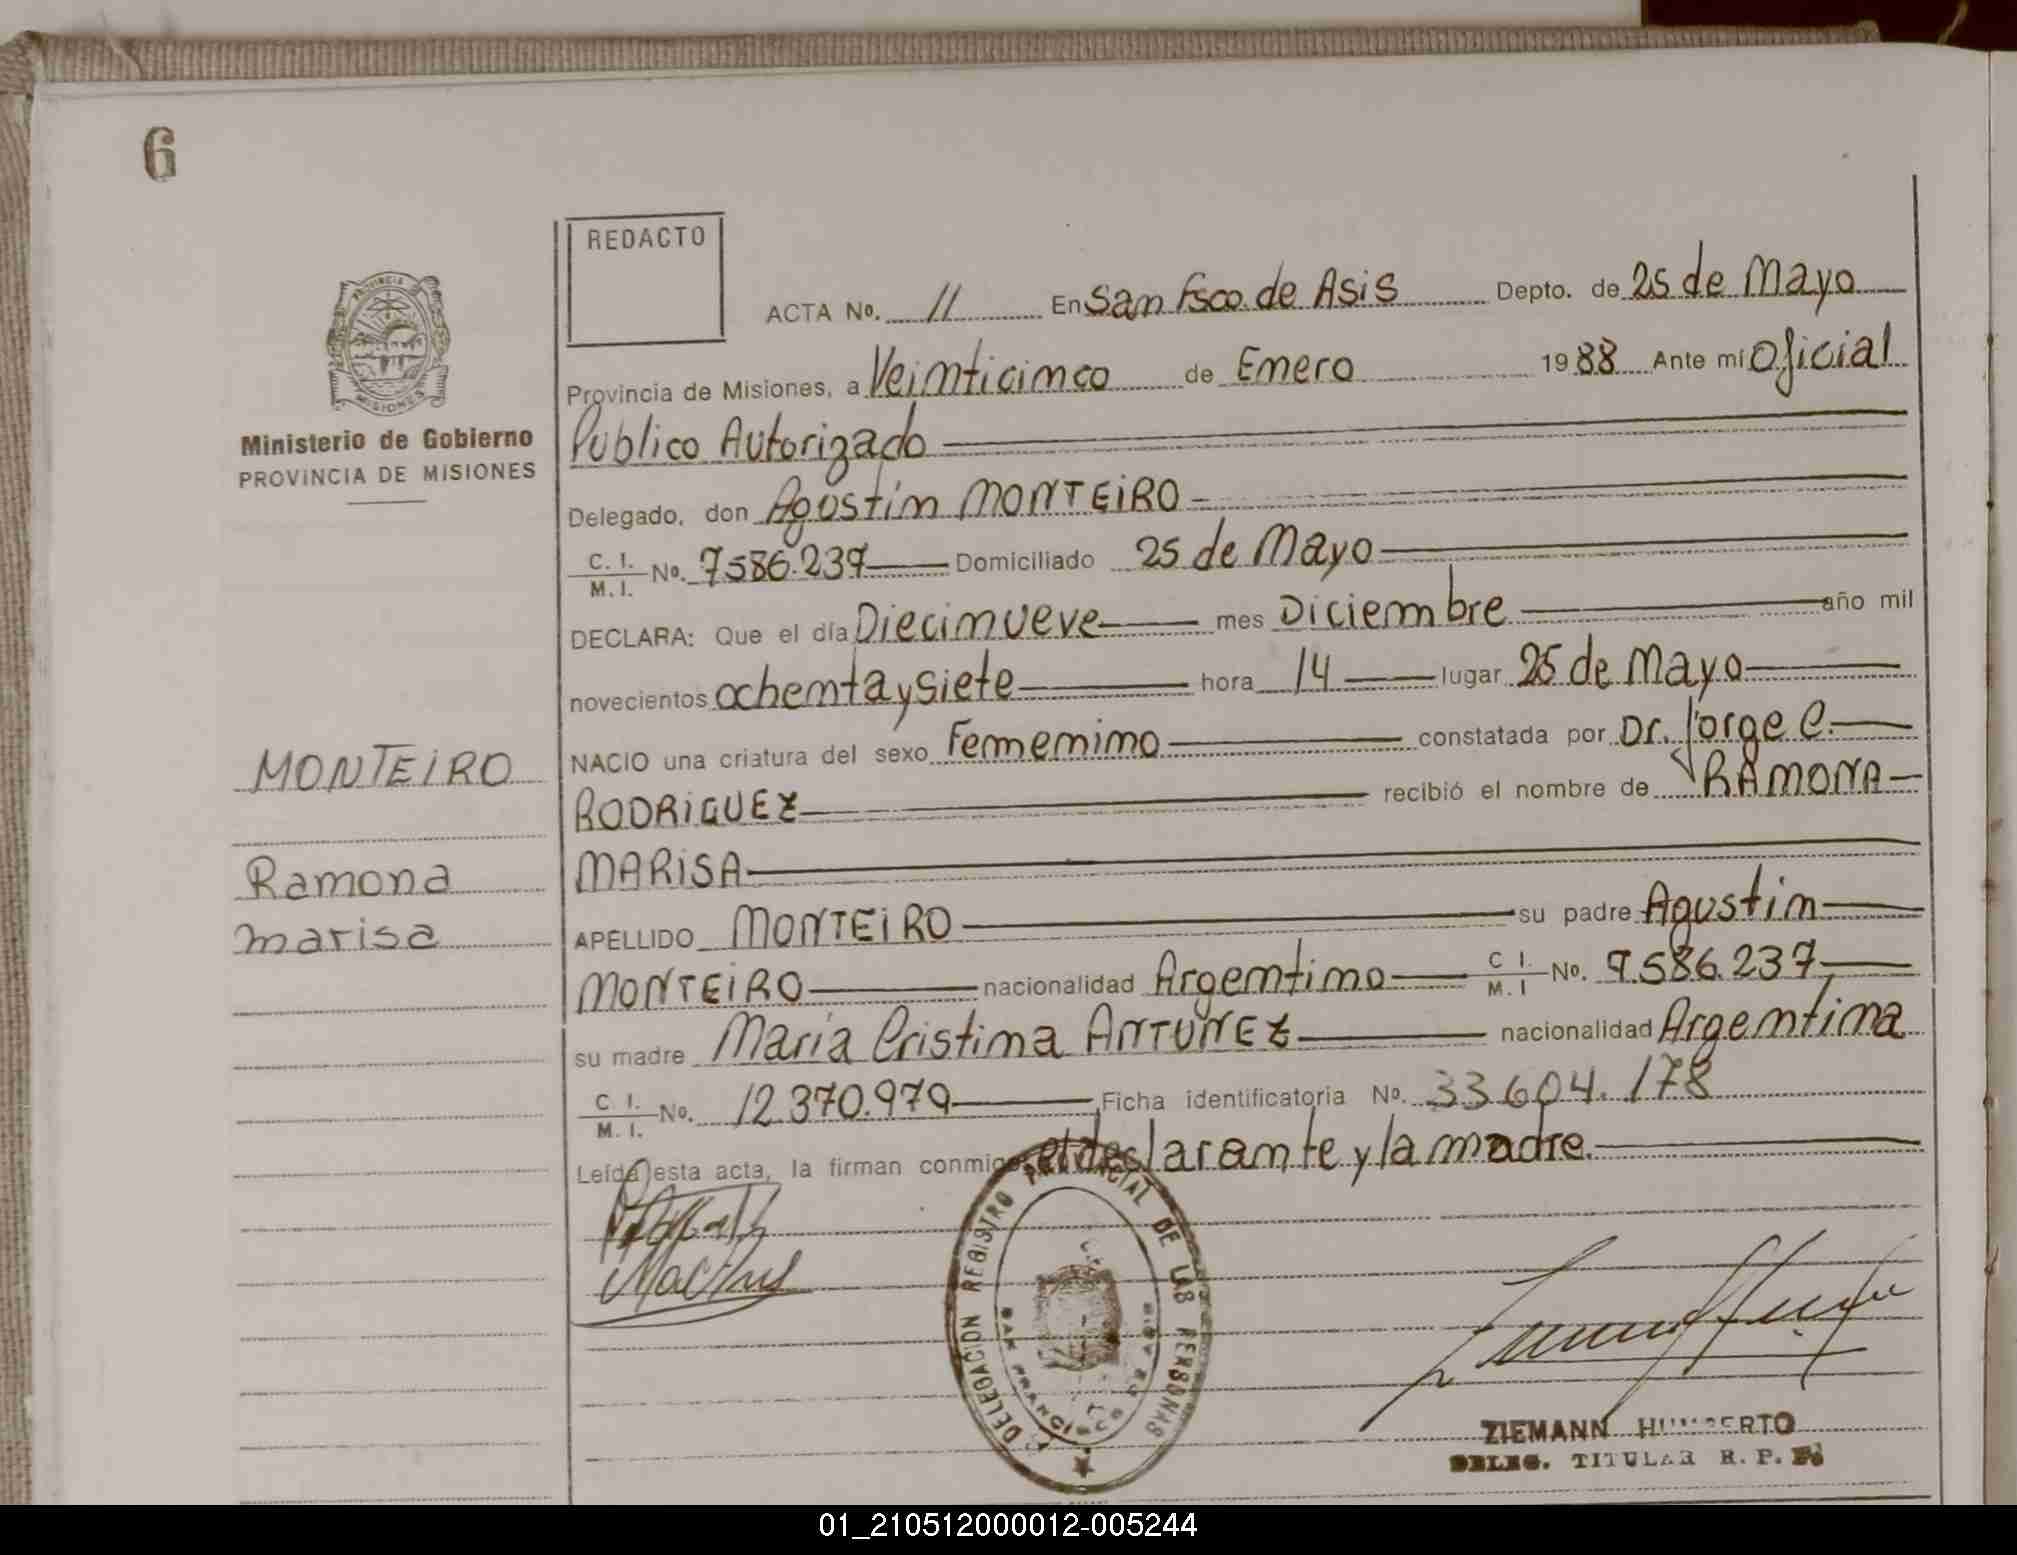 6
REDACTO
ACTA No. 11 En San Fsco. de Asis Depto. de 25 de Mayo
Provincia de Misiones, a Veinticinco de Enero 1988 Ante mi Oficial
Publico Autorizado
Delegado, don Agustin MONTEIRO
C. I. M. I. No. 7586.237 Domiciliado 25 de Mayo
DECLARA: Que el día Diecinueve mes Diciembre año mil
novecientos ochenta y siete hora 14 lugar 25 de Mayo
NACIO una criatura del sexo Femenino constatada por Dr. Jorge C.
RODRIGUEZ recibió el nombre de RAMONA
MARISA
APELLIDO MONTEIRO su padre Agustin
MONTEIRO nacionalidad Argentino C I. M. I No. 7.586.237
su madre María Cristina ANTUNEZ nacionalidad Argentina
C. I. M. I. No. 12.370.979 Ficha identificatoria No. 33.604.178
Leída esta acta, la firman conmigo el declarante y la madre.
PROVINCIA
MISIONES
Ministerio de Gobierno
PROVINCIA DE MISIONES
MONTEIRO
Ramona
Marisa
DELEGACION REGISTRO PROVINCIAL DE LAS PERSONAS
SAN FRANCISCO DE ASIS
ZIEMANN HUMBERTO
DELEG. TITULAR R. P. P.
01_210512000012-005244